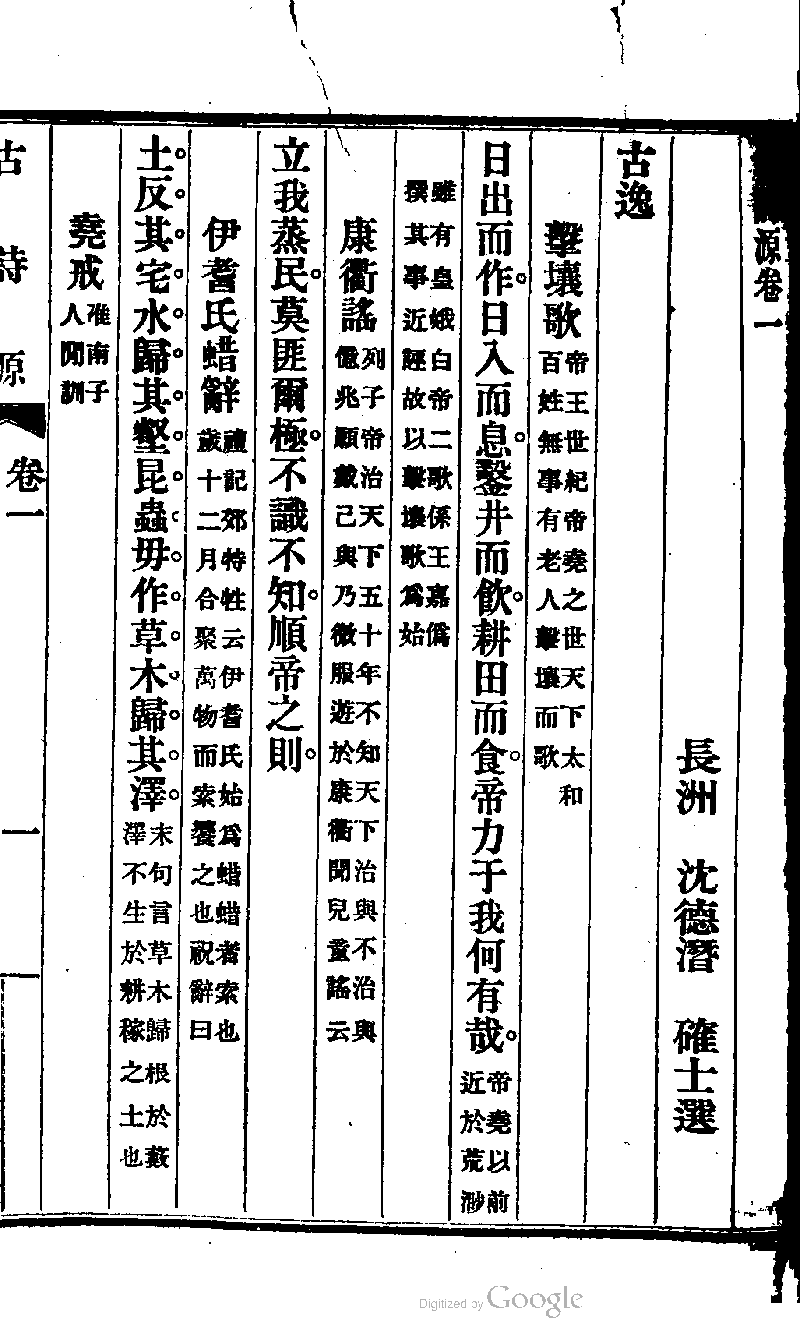 源卷一
長洲 沈德潛 確士選
古逸
擊壤歌 帝王世紀帝堯之世天下太和
百姓無事有老人擊壤而歌
日出而作。日入而息。鑿井而飲。耕田而食。帝力于我何有哉。帝堯以前
近於荒渺
雖有皇娥白帝二歌係王嘉僞
撰其事近誣故以擊壤歌爲始
康衢謠 列子帝治天下五十年不知天下治與不治與
億兆願戴己與乃微服遊於康衢聞兒童謠云
立我蒸民。莫匪爾極。不識不知。順帝之則。
伊耆氏蜡辭 禮記郊特牲云伊耆氏始爲蜡蜡者索也
歲十二月合聚萬物而索饗之也祝辭曰
土。反。其。宅。水。歸。其。壑。昆。蟲。毋。作。草。木。歸。其。澤。末句言草木歸根於藪
澤不生於耕稼之土也
堯戒 淮南子
人閒訓
古詩源 卷一 一
Digitized by Google